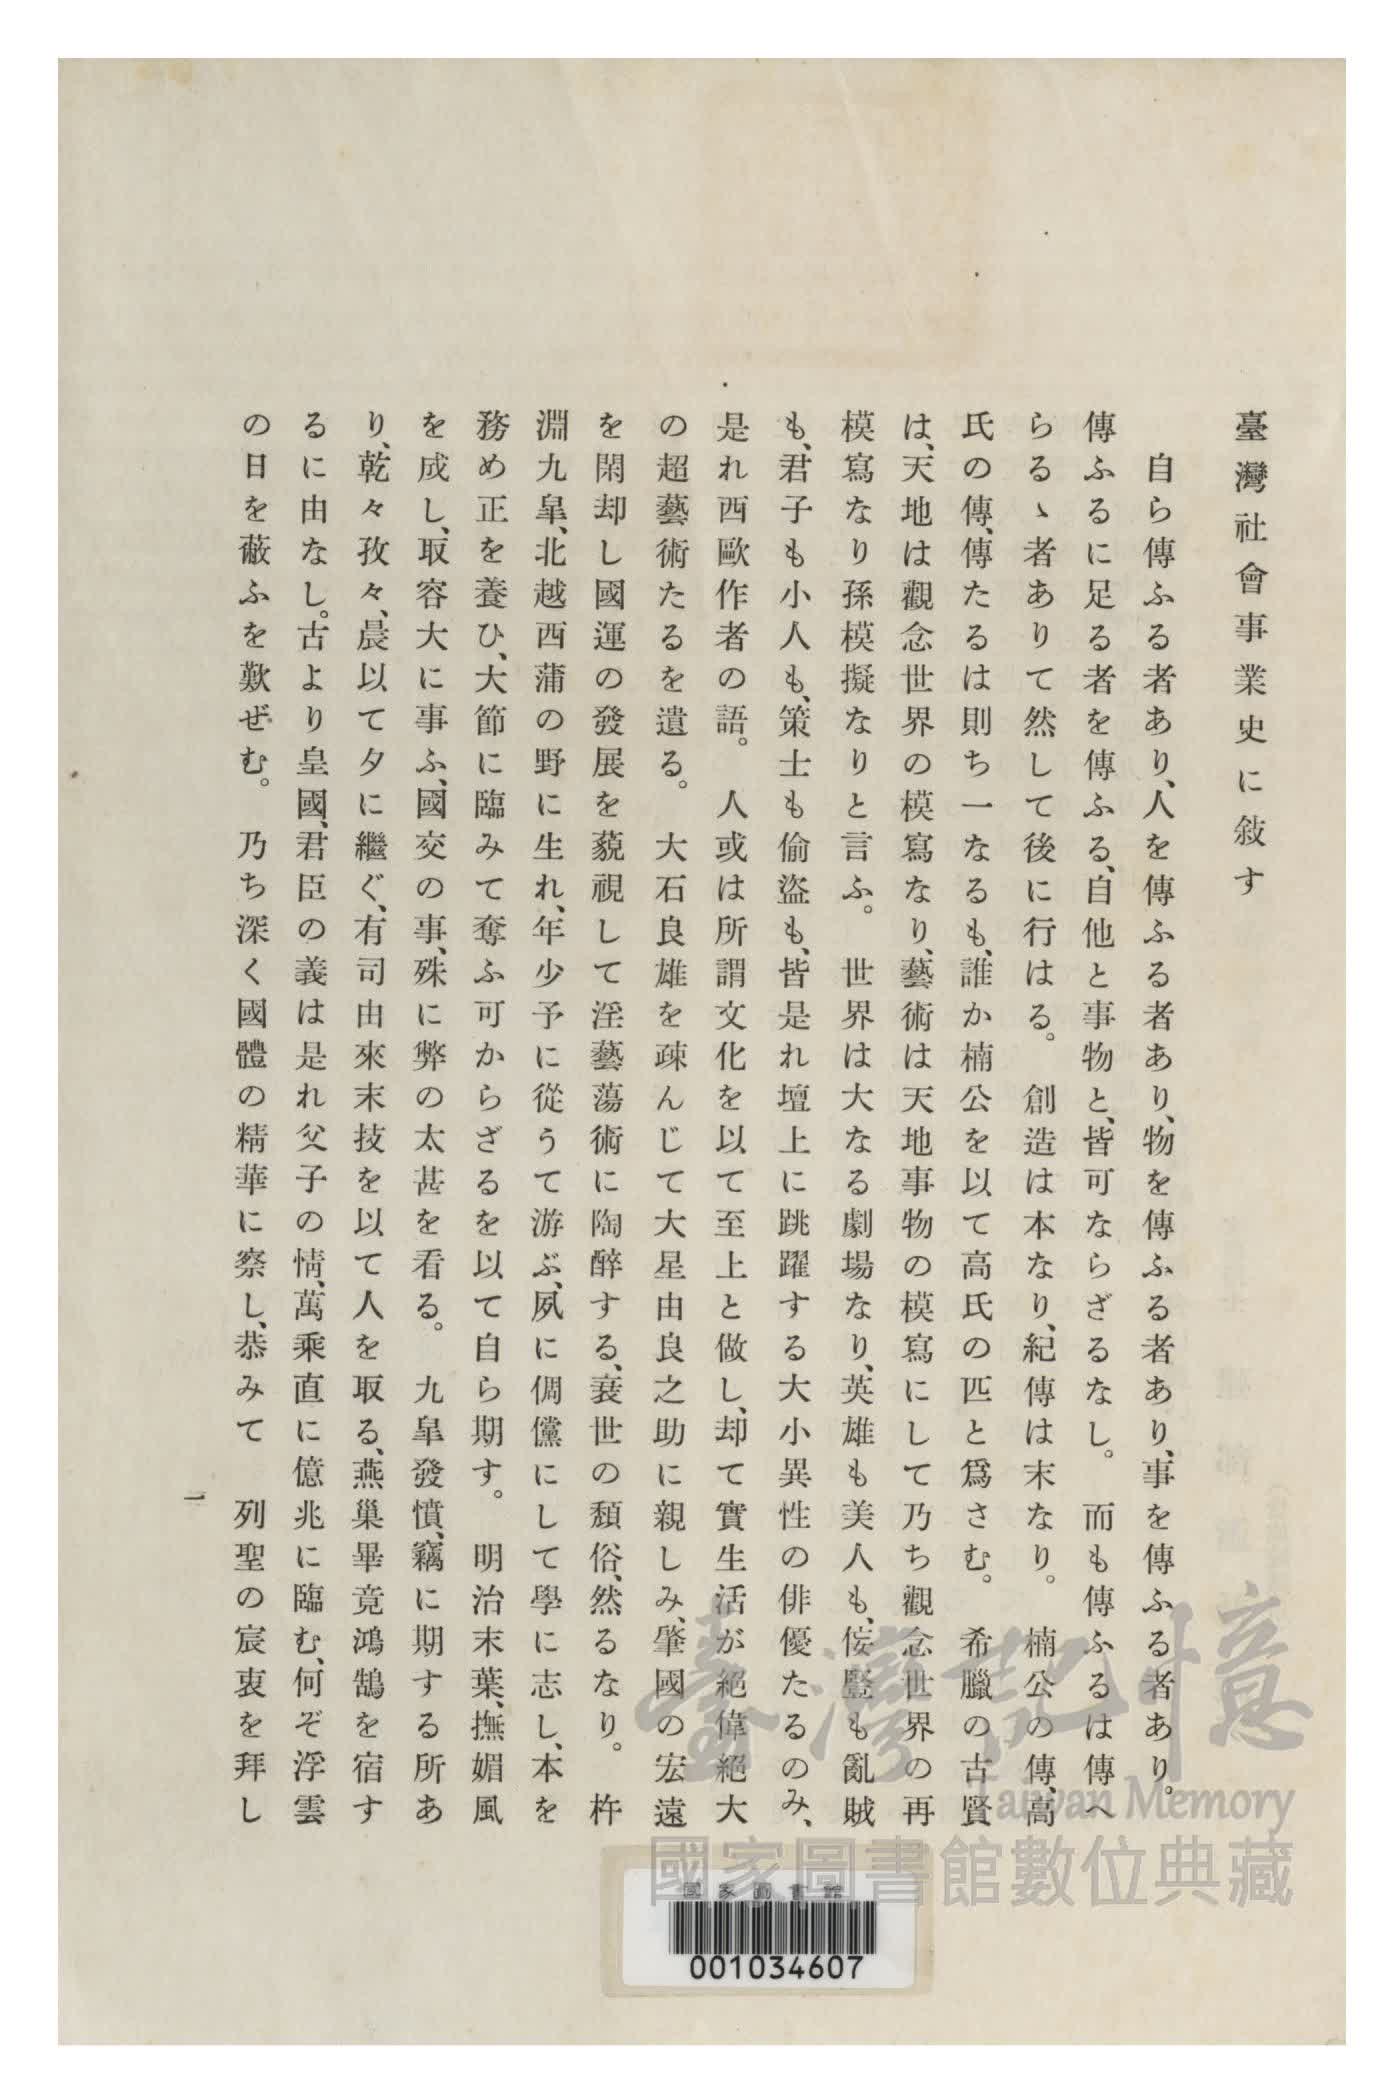 臺灣社會事業史に敍す
自ら傳ふる者あり、人を傳ふる者あり、物を傳ふる者あり、事を傳ふる者あり。
傳ふるに足る者を傳ふる、自他と事物と、皆可ならざるなし。而も傳ふるは傳へ
らるゝ者ありて然して後に行はる。創造は本なり、紀傳は末なり。楠公の傳、高
氏の傳、傳たるは則ち一なるも、誰か楠公を以て高氏の匹と爲さむ。希臘の古賢
は、天地は觀念世界の模寫なり、藝術は天地事物の模寫にして乃ち觀念世界の再
模寫なり孫模擬なりと言ふ。世界は大なる劇場なり、英雄も美人も、侫豎も亂賊
も、君子も小人も、策士も偷盜も、皆是れ壇上に跳躍する大小異性の俳優たるのみ、
是れ西歐作者の語。人或は所謂文化を以て至上と做し、却て實生活が絕偉絕大
の超藝術たるを遺る。大石良雄を疎んじて大星由良之助に親しみ、肇國の宏遠
を閑却し國運の發展を藐視して淫藝蕩術に陶醉する、衰世の頽俗、然るなり。杵
淵九皐、北越西蒲の野に生れ、年少予に從うて游ぶ、夙に倜儻にして學に志し、本を
務め正を養ひ、大節に臨みて奪ふ可からざるを以て自ら期す。明治末葉、撫媚風
を成し、取容大に事ふ、國交の事、殊に弊の太甚を看る。九皐發憤、竊に期する所あ
り、乾々孜々、晨以て夕に繼ぐ、有司由來末技を以て人を取る、燕巢畢竟鴻鵠を宿す
るに由なし。古より皇國、君臣の義は是れ父子の情、萬乘直に億兆に臨む、何ぞ浮雲
の日を蔽ふを歎ぜむ。乃ち深く國體の精華に察し、恭みて列聖の宸衷を拜し
一
臺灣記憶
Taiwan Memory
國家圖書館數位典藏
國家圖書館
001034607